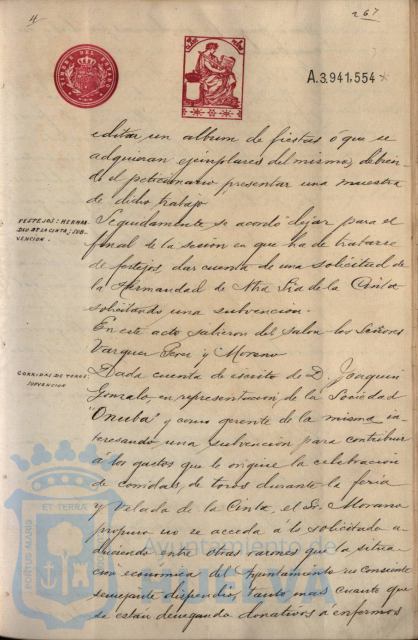 4
267
TIMBRE DEL ESTADO
A.3.941,554
editar un album de fiestas ó que se
adquieran ejemplares del mismo, debien
do el peticionario presentar una muestra
de dicho trabajo
FESTEJOS: HERMAN-
DAD DE LA CINTA; SUB-
VENCION.
Seguidamente se acordó dejar para el
final de la sesion en que ha de tratarse
de festejos, dar cuenta de una solicitud de
la Hermandad de Ntra Sra de la Cinta
solicitando una subvencion.
En este acto salieron del salon los Señores
Vazquez Perez y Moreno
CORRIDAS DE TOROS
SUBVENCION
Dada cuenta de escrito de D. Joaquin
Gonzalo, en representacion, de la Sociedad
"Onuba" y como gerente de la misma in
teresando una subvencion para contribuir
á los gastos que le origine la celebracion
de corridas, de toros durante la feria
y Velada de la Cinta, el Sr. Morano
propuso no se acceda á lo solicitado a
duciendo entre otras razones que la situa
cion económica del Ayuntamiento no consiente
semejante dispendio, tanto mas cuanto que
se están denegando donativos á enfermos
PORTUS MARIS
ET TERRAE
Ayuntamiento de
HUELVA